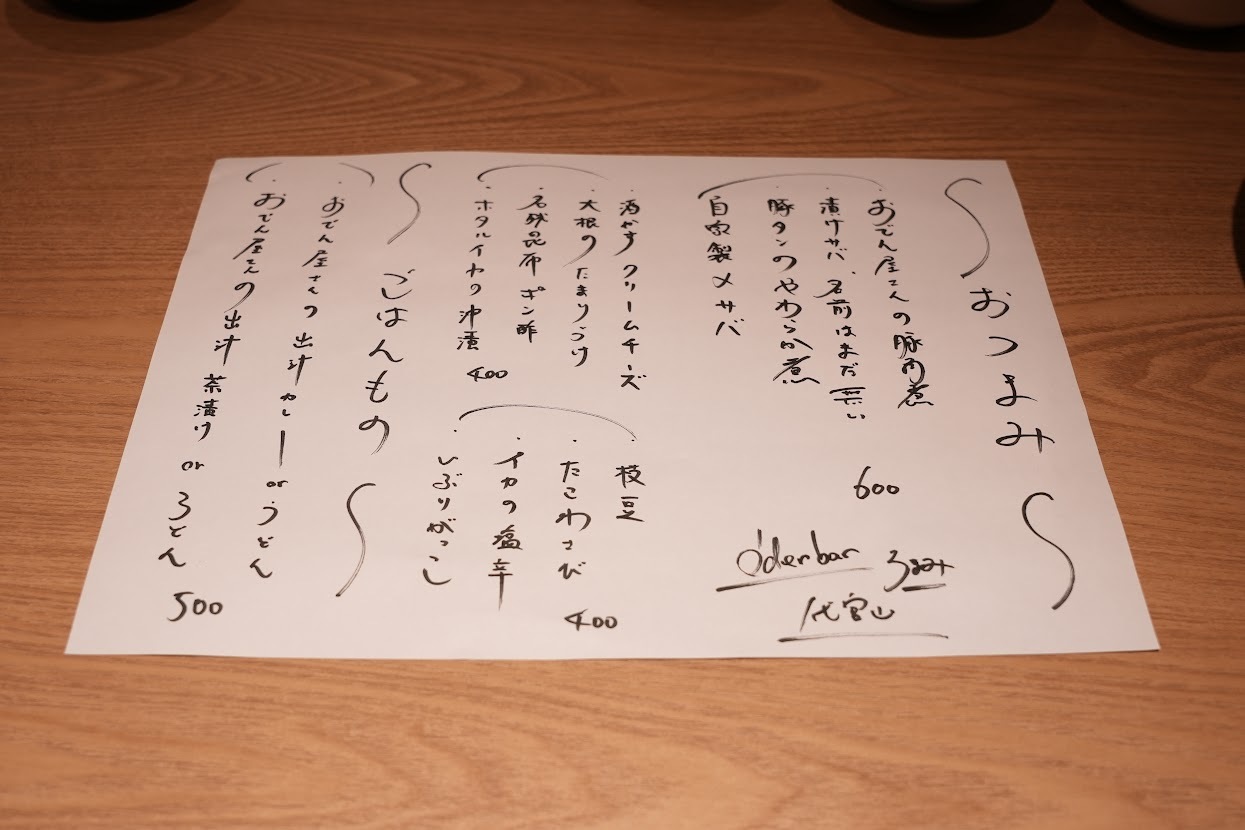 おつまみ
・おでん屋さんの豚角煮
・漬けサバ、名前はまだ無い
・豚タンのやわらか煮
・自家製〆サバ
600
・酒かすクリームチーズ
・大根のたまりづけ
・名残昆布ポン酢
・ホタルイカの沖漬
400
・枝豆
・たこわさび
・イカの塩辛
・いぶりがっこ
400
ごはんもの
・おでん屋さんの出汁カレー or うどん
・おでん屋さんの出汁茶漬け or うどん
500
Oden bar
うまみ
代官山